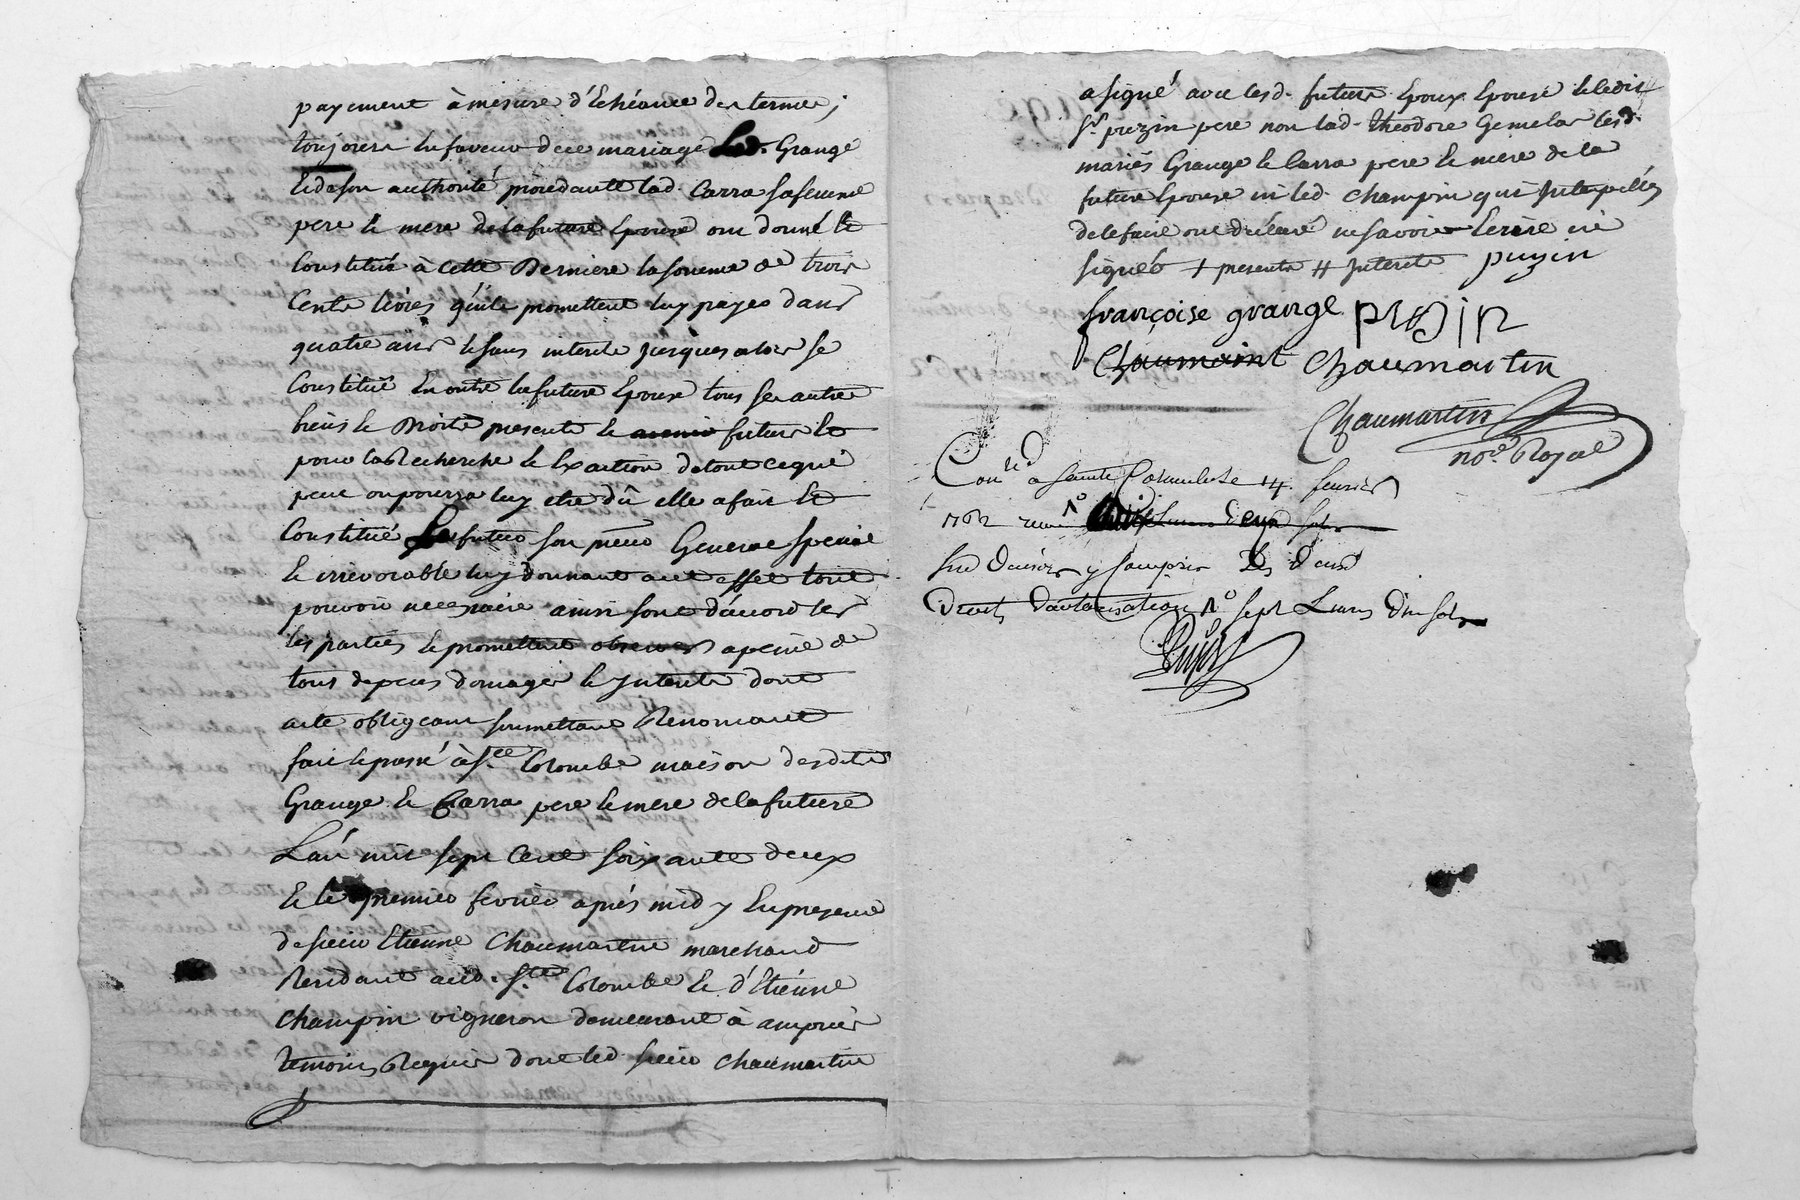 payement à mesure d'Echéance des termes;
toujours En faveur de ce mariage Led. Grange
Et de son authorité procedante lad. Carra sa femme
pere Et mere de la future Epouse ont donné Et
Constitué à Cette Derniere la somme de trois
Cents livres qu'ils promettent luy payer dans
quatre ans Et sans interets jusques alors se
Constitue En outre la future Epouse tous ses autres
biens Et Droits presents Et avenir futurs Et
pour la Recherche Et Exaction de tout ce qui
peut ou pourra luy etre dû elle a fait Et
Constitué Le futur son Generale speciale
Et irrevocable luy donnant a cet effet tout
pouvoir necessaire ainsi sont d'accord les
les parties Et promettent observer a peine de
tous depens domages Et Interets dont
acte obligeant soumettant Renoncant
fait Et passé à Ste Colombe maison desdits
Grange Et Carra pere Et mere de la future
L'an mil sept Cent soixante deux
Et le premier février après midy En presence
de sieur Etienne Chaumartin marchand
Residant aud. Ste Colombe Et d'Etienne
Champin vigneron demeurant à ampuis
temoins Requis dont led sieur Chaumartin
a signé avec lesd. futurs Epoux Epouse Et ledit
Sr puzin pere non lad. theodore Gemelas lesd.
mariés Grange Et Carra pere Et mere de la
future Epouse ni led Champin qui Interpellés
de le faire ont déclaré ne savoir Ecrire ni
signer + presents # Interets puzin
françoise grange puzin
Chaumaint Chaumartin
Chaumartin
not. Royal
Con. a Sainte Colombe Le 14 fevrier
1762 livres deux sols
six deniers y Compris Les deux
Droits Dautorisation sept Livres Dix sols